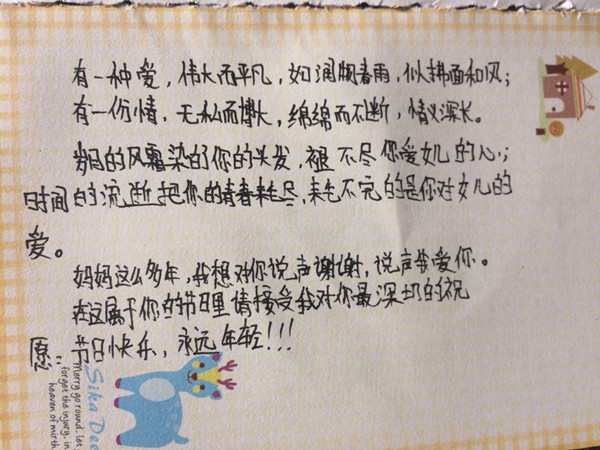 有一种爱，伟大而平凡，如润物春雨，似拂面和风；
有一份情，无私而博长，绵绵而不断，情义深长。
岁月的风霜染白你的头发，褪不尽你爱女儿的心；
时间的流逝把你的青春耗尽，耗不完的是你对女儿的
爱。
妈妈这么多年，我想对你说声谢谢，说声我爱你。
在这属于你的节日里请接受我对你最深切的祝
愿：节日快乐，永远年轻!!!
Sika Dee
Merry go round. let
forget the injury, in
heaven of mirth